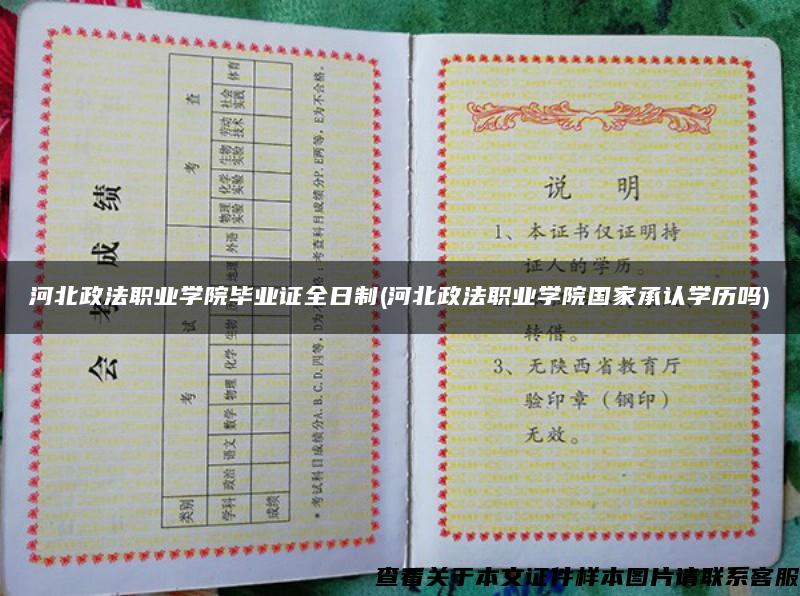 会考成绩
类别 考试 考查
学科 政治 语文 数学 物理 化学 生物 地理 外语 物理实验 化学实验 生物实验 劳动技术 社会实践 体育
成绩
*考试科目成绩分A.B.C.D.四等,D为
考查科目成绩分P.E两等,E为不合格。
说 明
1、本证书仅证明持
证人的学历。
转借。
3、无陕西省教育厅
验印章(钢印)
无效。
河北政法职业学院毕业证全日制(河北政法职业学院国家承认学历吗)
查看关于本文证件样本图片请联系客服